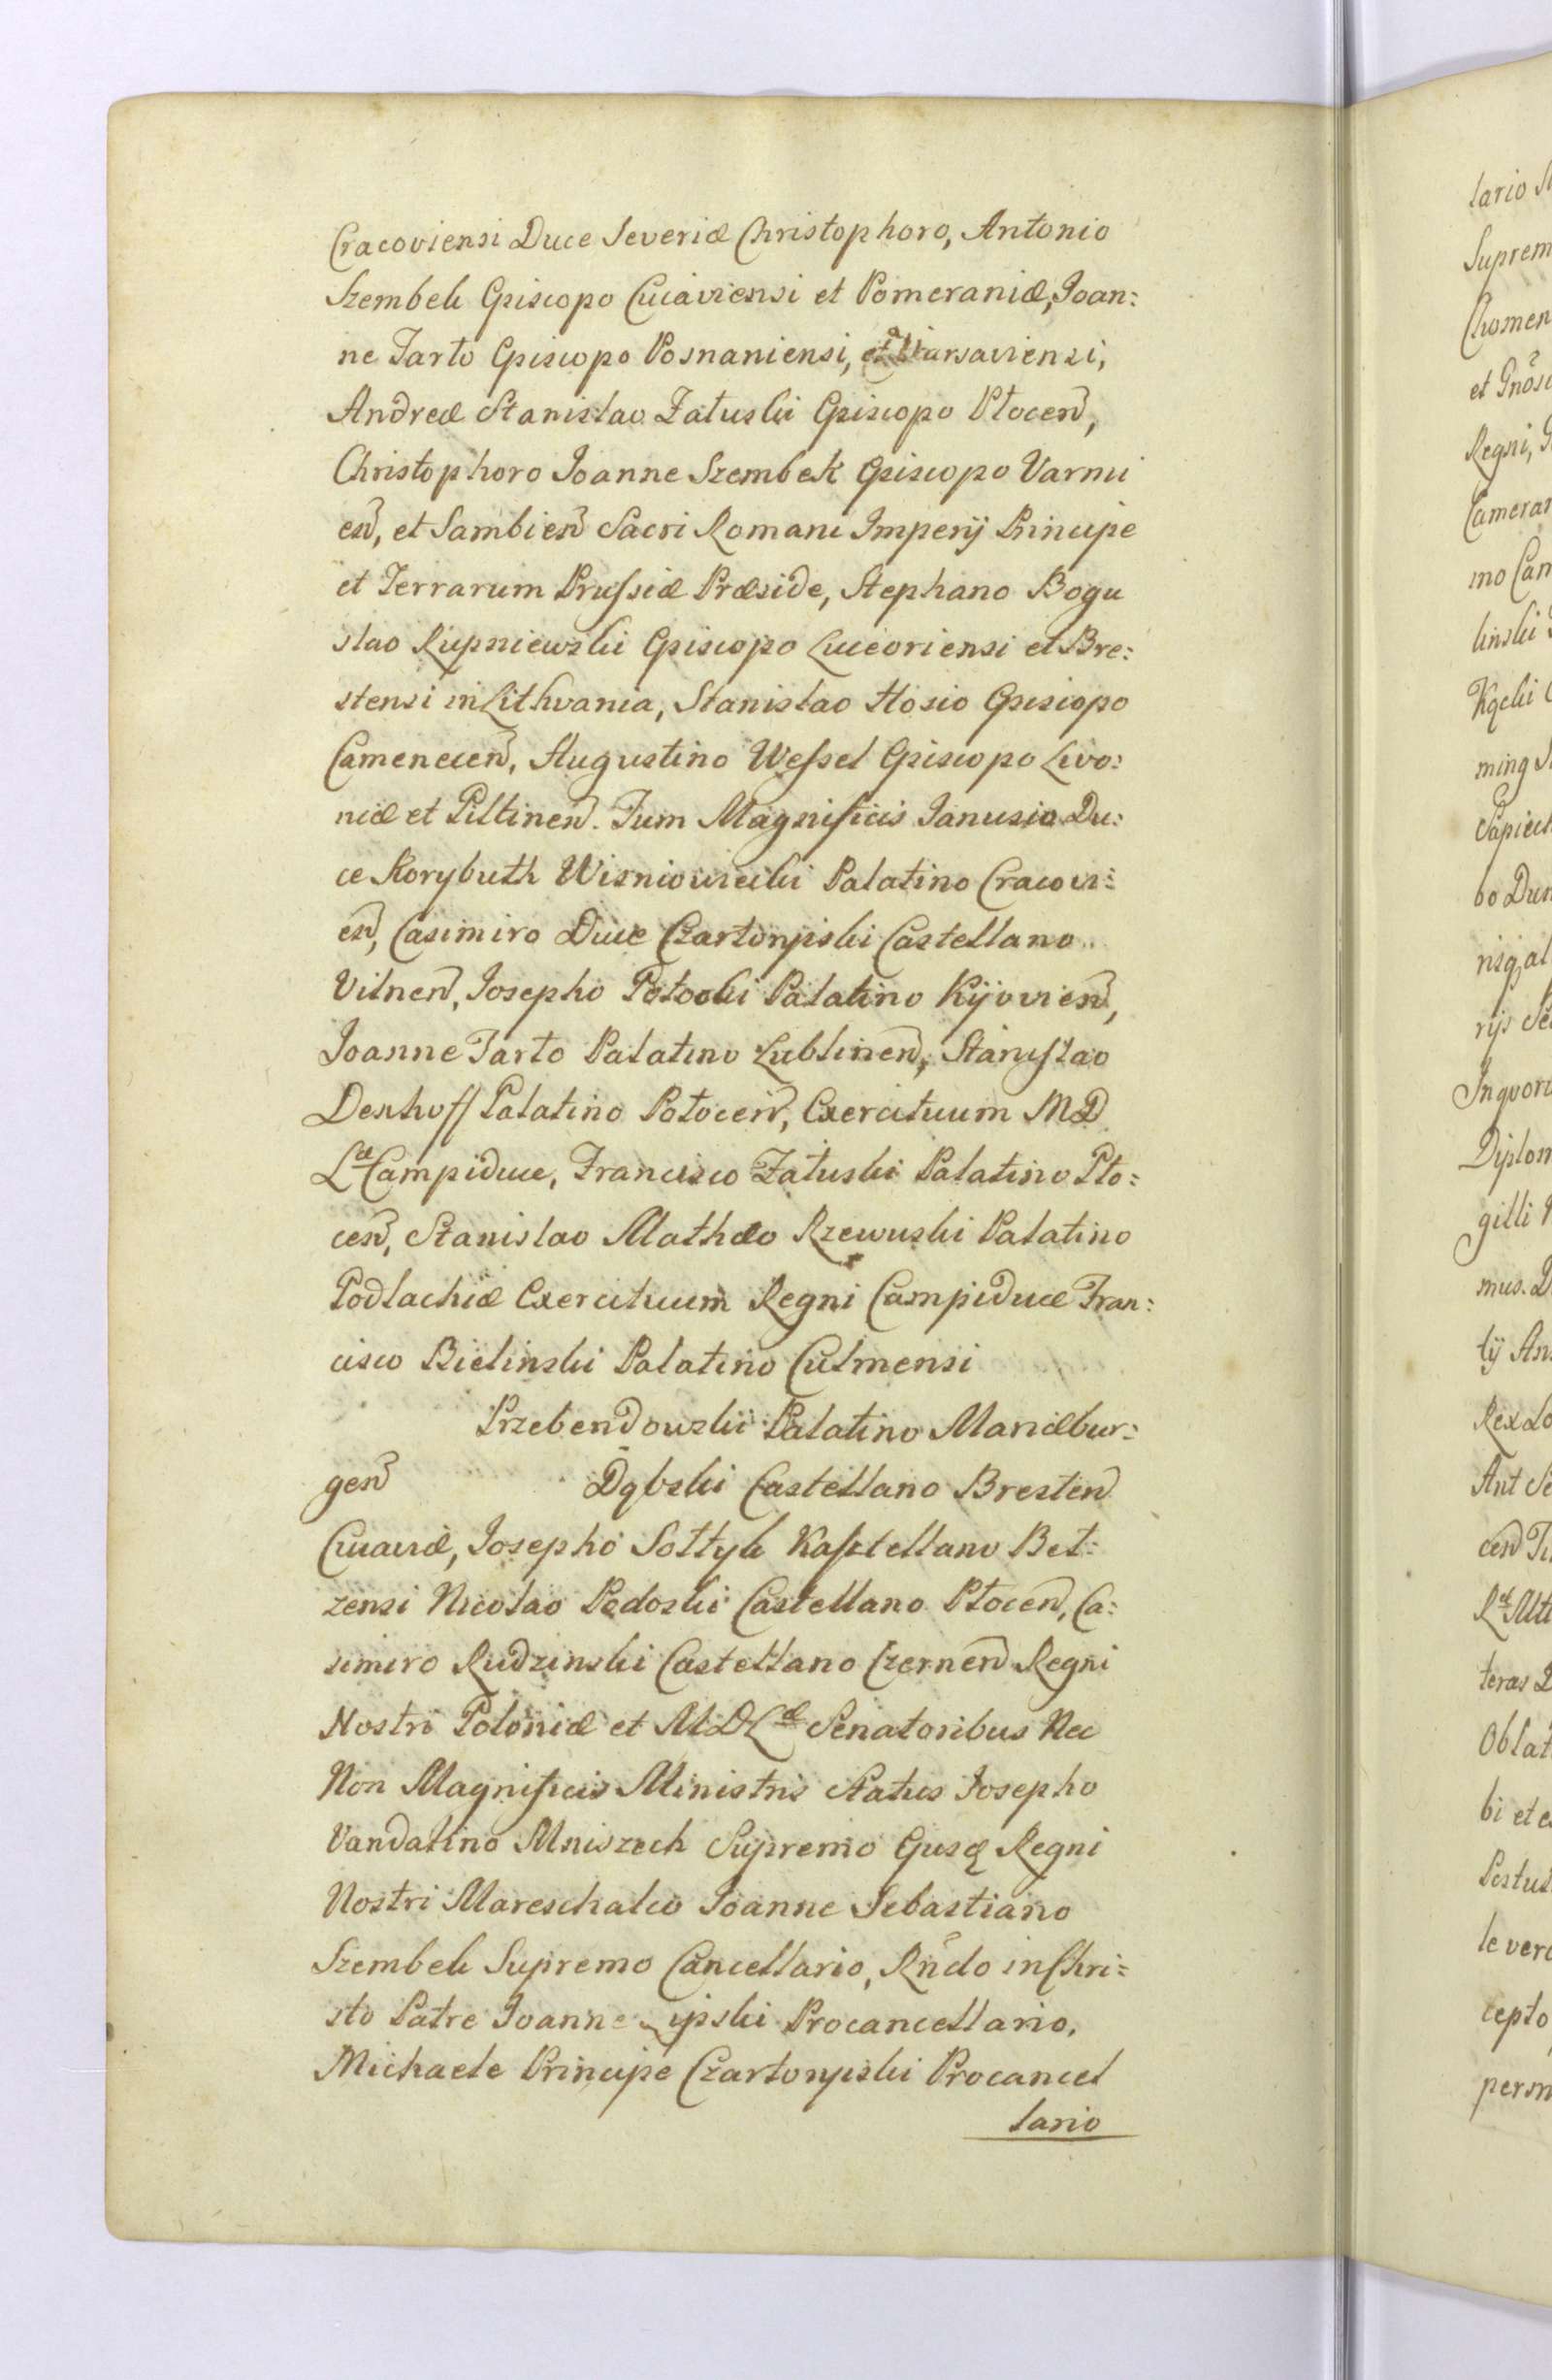 Cracoviensi Duce Severiæ Christophoro, Antonio
Szembek Episcopo Cuiaviensi et Pomeraniæ, Joan:
ne Tarło Episcopo Posnaniensi, et Varsaviensi,
Andreæ Stanislao Załuski Episcopo Płocen̄,
Christophoro Joanne Szembek Episcopo Varmi
en̄, et Sambien̄ Sacri Romani Imperij Principe
et Terrarum Prussiæ Præside, Stephano Bogu
slao Rupniewski Episcopo Luceoriensi et Bre:
stensi in Lithvania, Stanislao Hosio Episcopo
Camenecen̄, Augustino Wessel Episcopo Livo:
niæ et Piltinen̄. Tum Magnificis Janusio Du:
ce Korybuth Wisniowiecki Palatino Cracovi:
en̄, Casimiro Duce Czartoryiski Castellano
Vilnen̄, Josepho Potocki Palatino Kijovien̄,
Joanne Tarło Palatino Lublinen̄, Stanislao
Denhoff Palatino Połocen̄, Exercituum MD
Læ Campiduce, Francisco Załuski Palatino Pło:
cen̄, Stanislao Mathæo Rzewuski Palatino
Podlachiæ Exercituum Regni Campiduce Fran:
cisco Bielinski Palatino Culmensi
Przebendowski Palatino Mariæbur:
gen̄ Dąbski Castellano Bresten̄
Cuiaviæ, Josepho Sołtyk Kasztellano Bel:
zensi Nicolao Podoski Castellano Płocen̄, Ca:
simiro Rudzinski Castellano Czernen̄ Regni
Nostri Poloniæ et MDLæ Senatoribus Nec
Non Magnificis Ministris Status Josepho
Vandalino Mniszech Supremo Ejusq Regni
Nostri Mareschalco Joanne Sebastiano
Szembek Supremo Cancellario, Rn̄do in Chri=
sto Patre Joanne Lipski Procancellario,
Michaele Principe Czartoryiski Procancel
lario
lario
Suprem
Chomen
et Gnōso
Regni,
Camerar
mo Can
linski
Kącki
ming
Sapieh
bo Dun
risq, al
rijs Se
In quoru
Diplom
gilli
mus. D
tij An
Rex Lo
Ant Se
cen̄
teras
Oblat
bi et e
Postul
le vero
cepto
perm